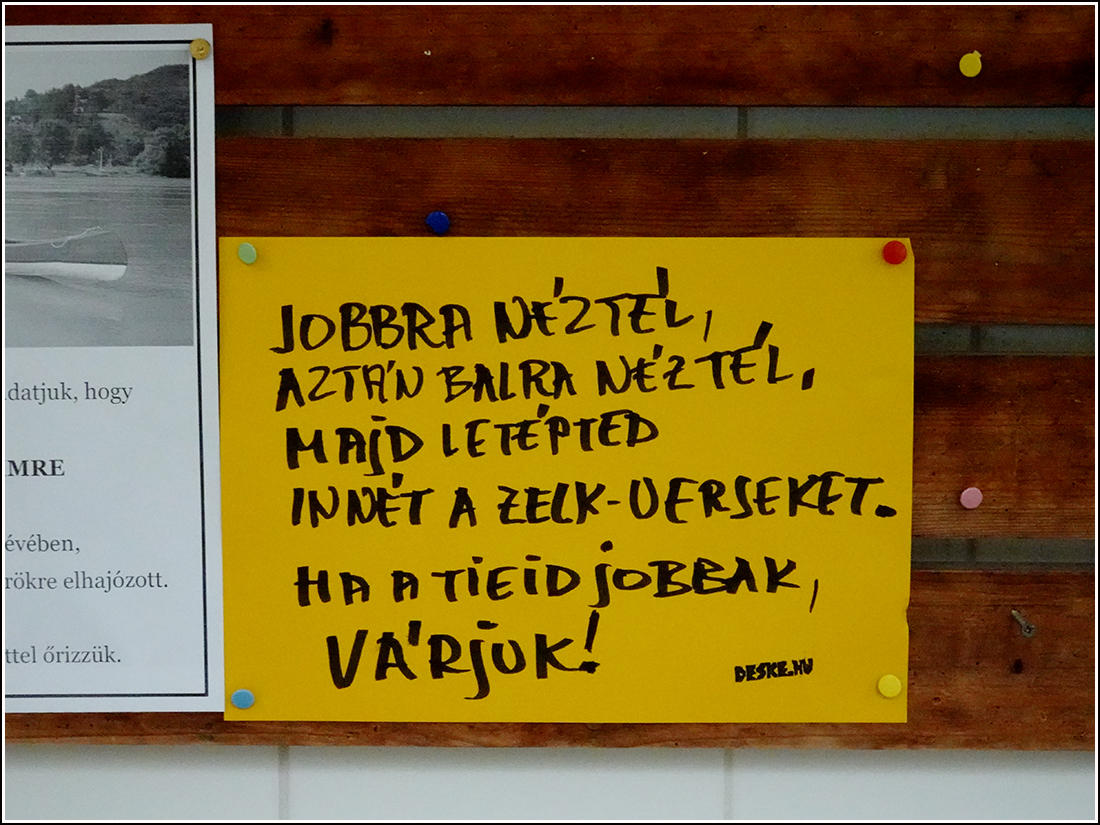 datjuk, hogy
MRE
évében,
rökre elhajózott.
ttel őrizzük.
JOBBRA NÉZTÉL,
AZTÁN BALRA NÉZTÉL,
MAJD LETÉPTED
INNÉT A ZELK-VERSEKET.
HA A TIEID JOBBAK,
VÁRJUK!
DESKE.HU